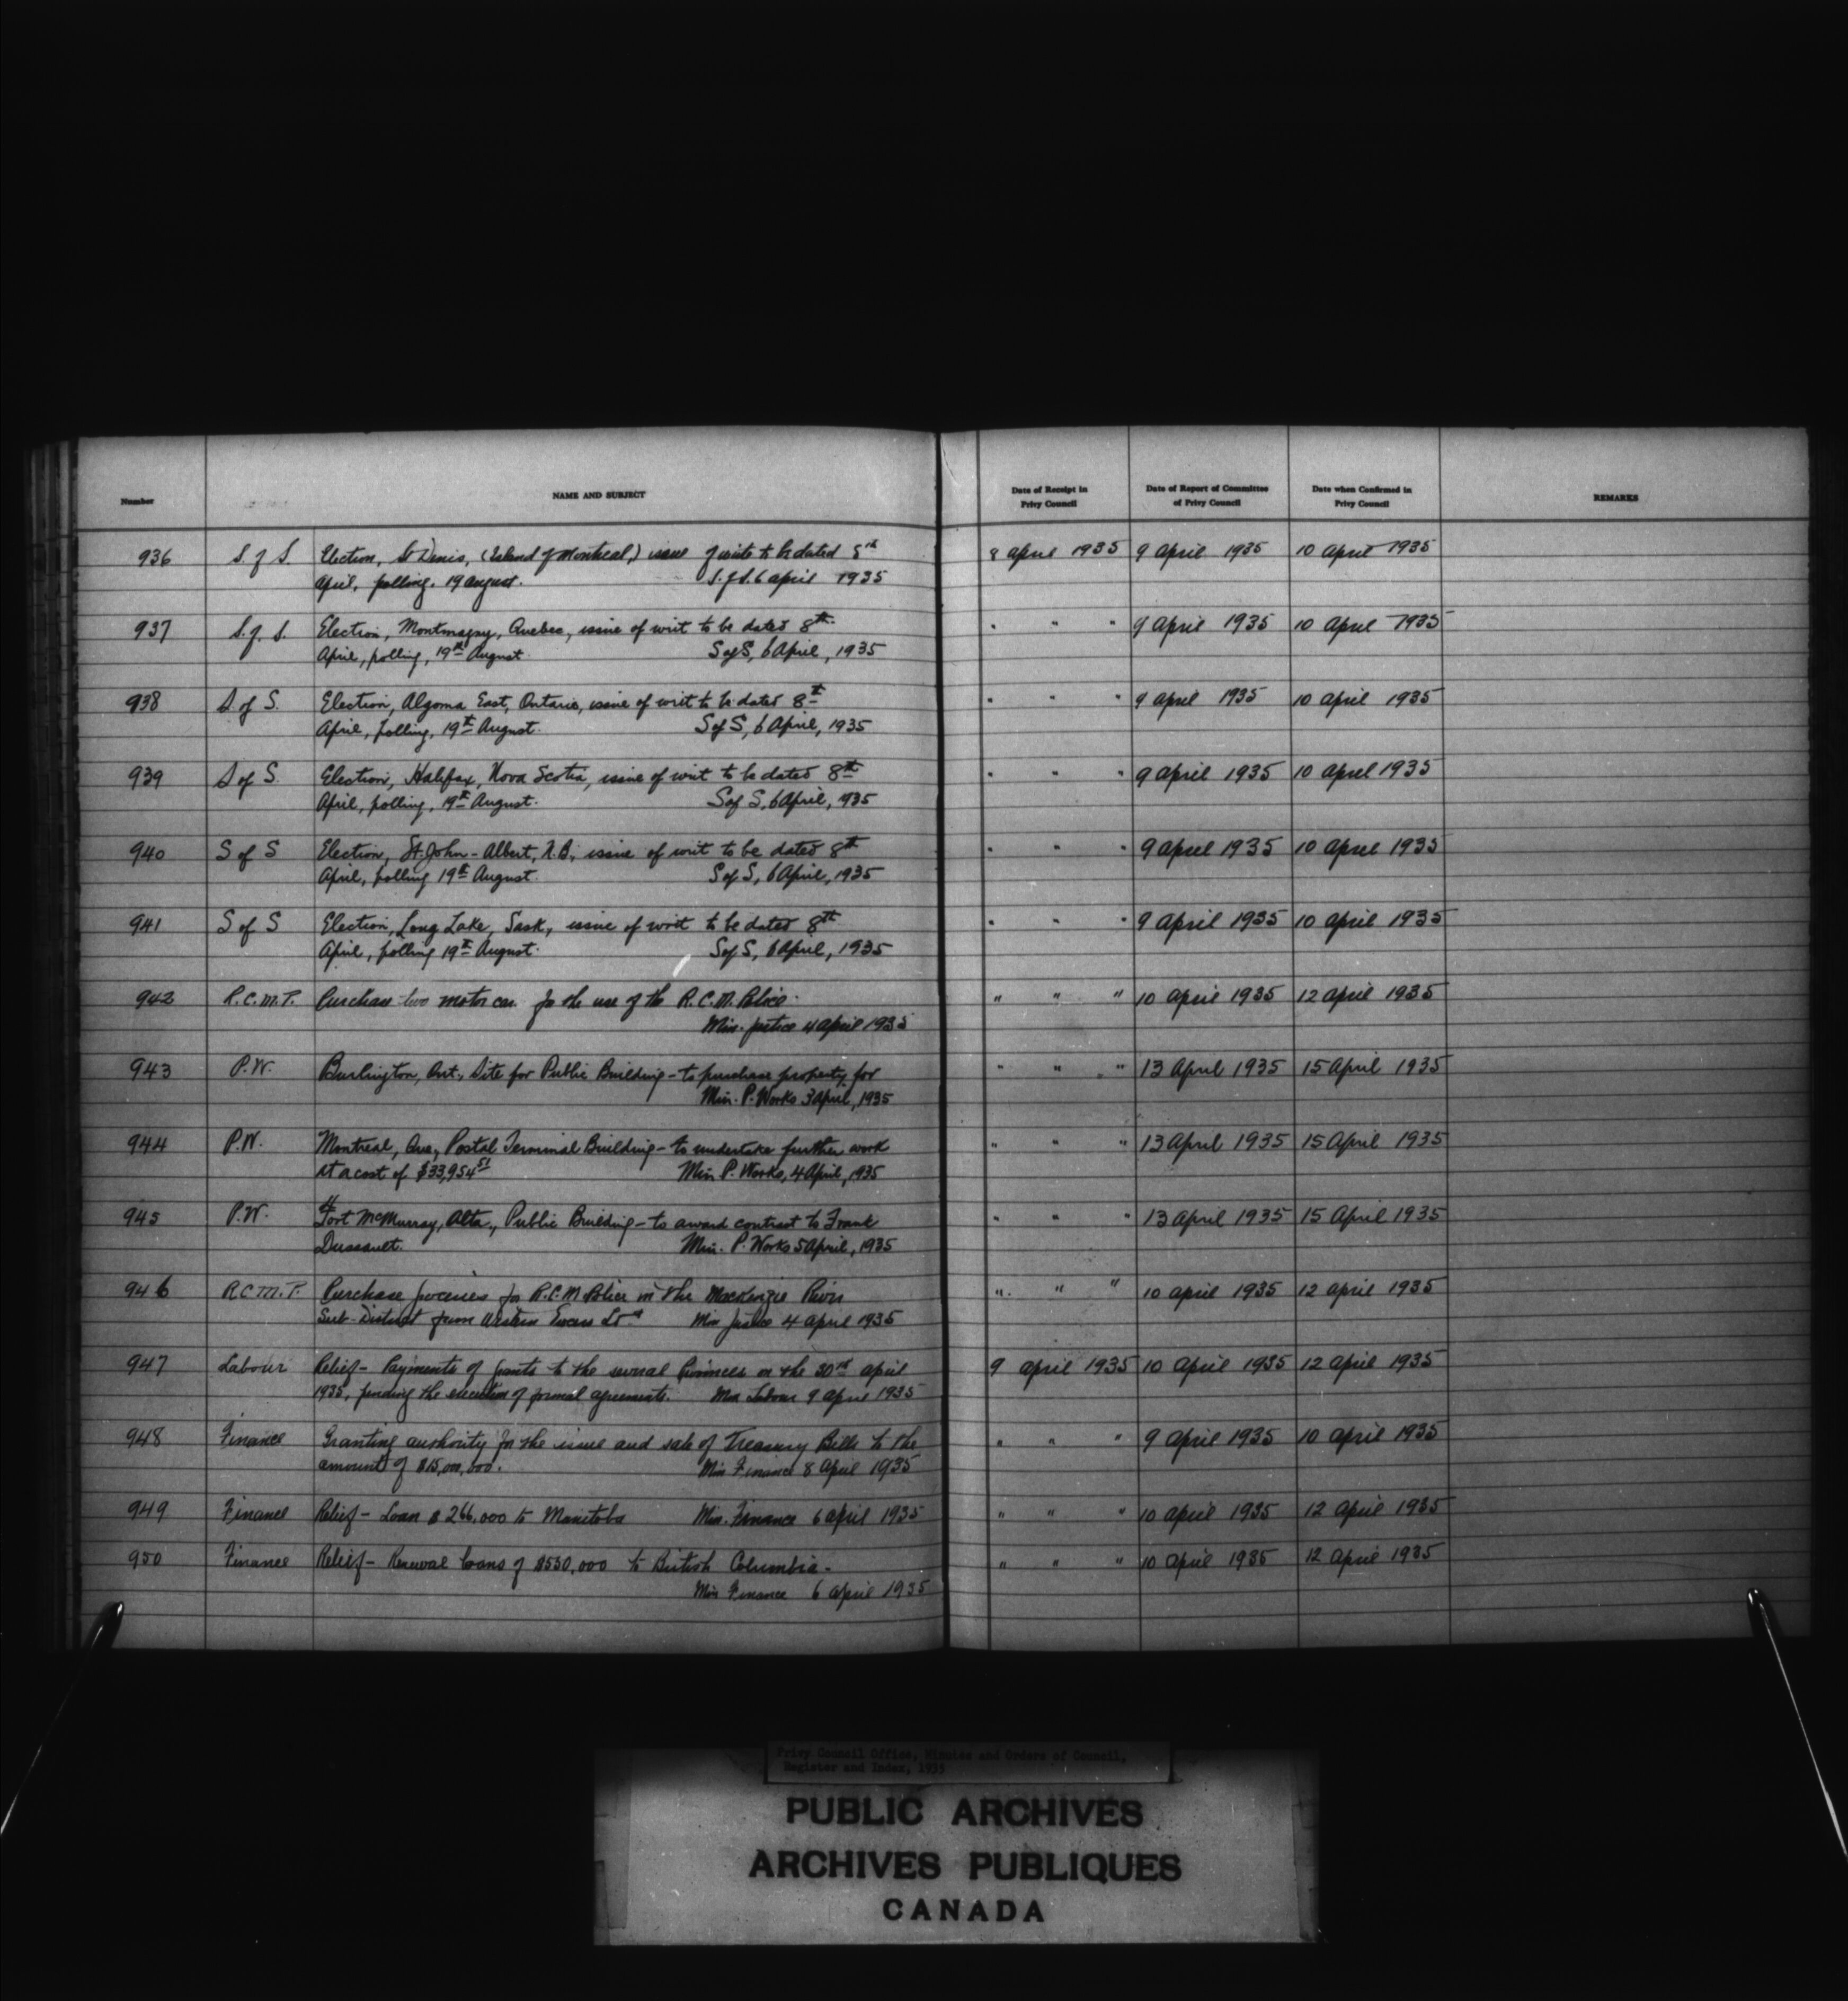 Number NAME AND SUBJECT Date of Receipt in Privy Council Date of Report of Committee of Privy Council Date when Confirmed in Privy Council REMARKS
936 S. of S. Election, St Denis, (Island of Montreal,) issue of writ to be dated 8th 8 April 1935 9 April 1935 10 April 1935
April, polling, 19 August. S. of S. 6 April 1935
937 S. of S. Election, Montmagny, Quebec, issue of writ to be dated 8th " " " 9 April 1935 10 April 1935
April, polling, 19th August S of S, 6 April, 1935
938 S of S. Election, Algoma East, Ontario, issue of writ to be dated 8th " " " 9 April 1935 10 April 1935
April, polling, 19th August. S of S, 6 April, 1935
939 S of S. Election, Halifax, Nova Scotia, issue of writ to be dated 8th " " " 9 April 1935 10 April 1935
April, polling, 19th August. S of S, 6 April, 1935
940 S of S Election, St. John - Albert, N.B., issue of writ to be dated 8th " " " 9 April 1935 10 April 1935
April, polling 19th August. S of S, 6 April, 1935
941 S of S Election, Long Lake, Sask, issue of writ to be dated 8th " " " 9 April 1935 10 April 1935
April, polling 19th August. S of S, 6 April, 1935
942 R.C.M.P. Purchase two motor cars for the use of the R.C.M. Police. " " " 10 April 1935 12 April 1935
Min. Justice 4 April 1935
943 P.W. Burlington, Ont., Site for Public Building - to purchase property for " " " 13 April 1935 15 April 1935
Min. P. Works 3 April, 1935
944 P.W. Montreal, Que, Postal Terminal Building - to undertake further work " " " 13 April 1935 15 April 1935
at a cost of $33,954 51 Min P. Works, 4 April, 1935
945 P.W. Fort McMurray, Alta., Public Building - to award contract to Frank " " " 13 April 1935 15 April 1935
Dussault. Min. P. Works 5 April, 1935
946 R.C.M.P. Purchase groceries for R.C.M. Police in the MacKenzie River " " " 10 April 1935 12 April 1935
Sub-District from Evans Ltd Min Justice 4 April 1935
947 Labour Relief - Payments of grants to the several Provinces on the 30th April 9 April 1935 10 April 1935 12 April 1935
1935, pending the execution of formal agreements. Min Labour 9 April 1935
948 Finance Granting authority for the issue and sale of Treasury Bills to the " " " 9 April 1935 10 April 1935
amount of $15,000,000. Min Finance 8 April 1935
949 Finance Relief - Loan $266,000 to Manitoba Min. Finance 6 April 1935 " " " 10 April 1935 12 April 1935
950 Finance Relief - Renewal loans of $550,000 to British Columbia. " " " 10 April 1935 12 April 1935
Min Finance 6 April 1935
Privy Council Office, Minutes and Orders of Council,
Register and Index, 1935
PUBLIC ARCHIVES
ARCHIVES PUBLIQUES
CANADA